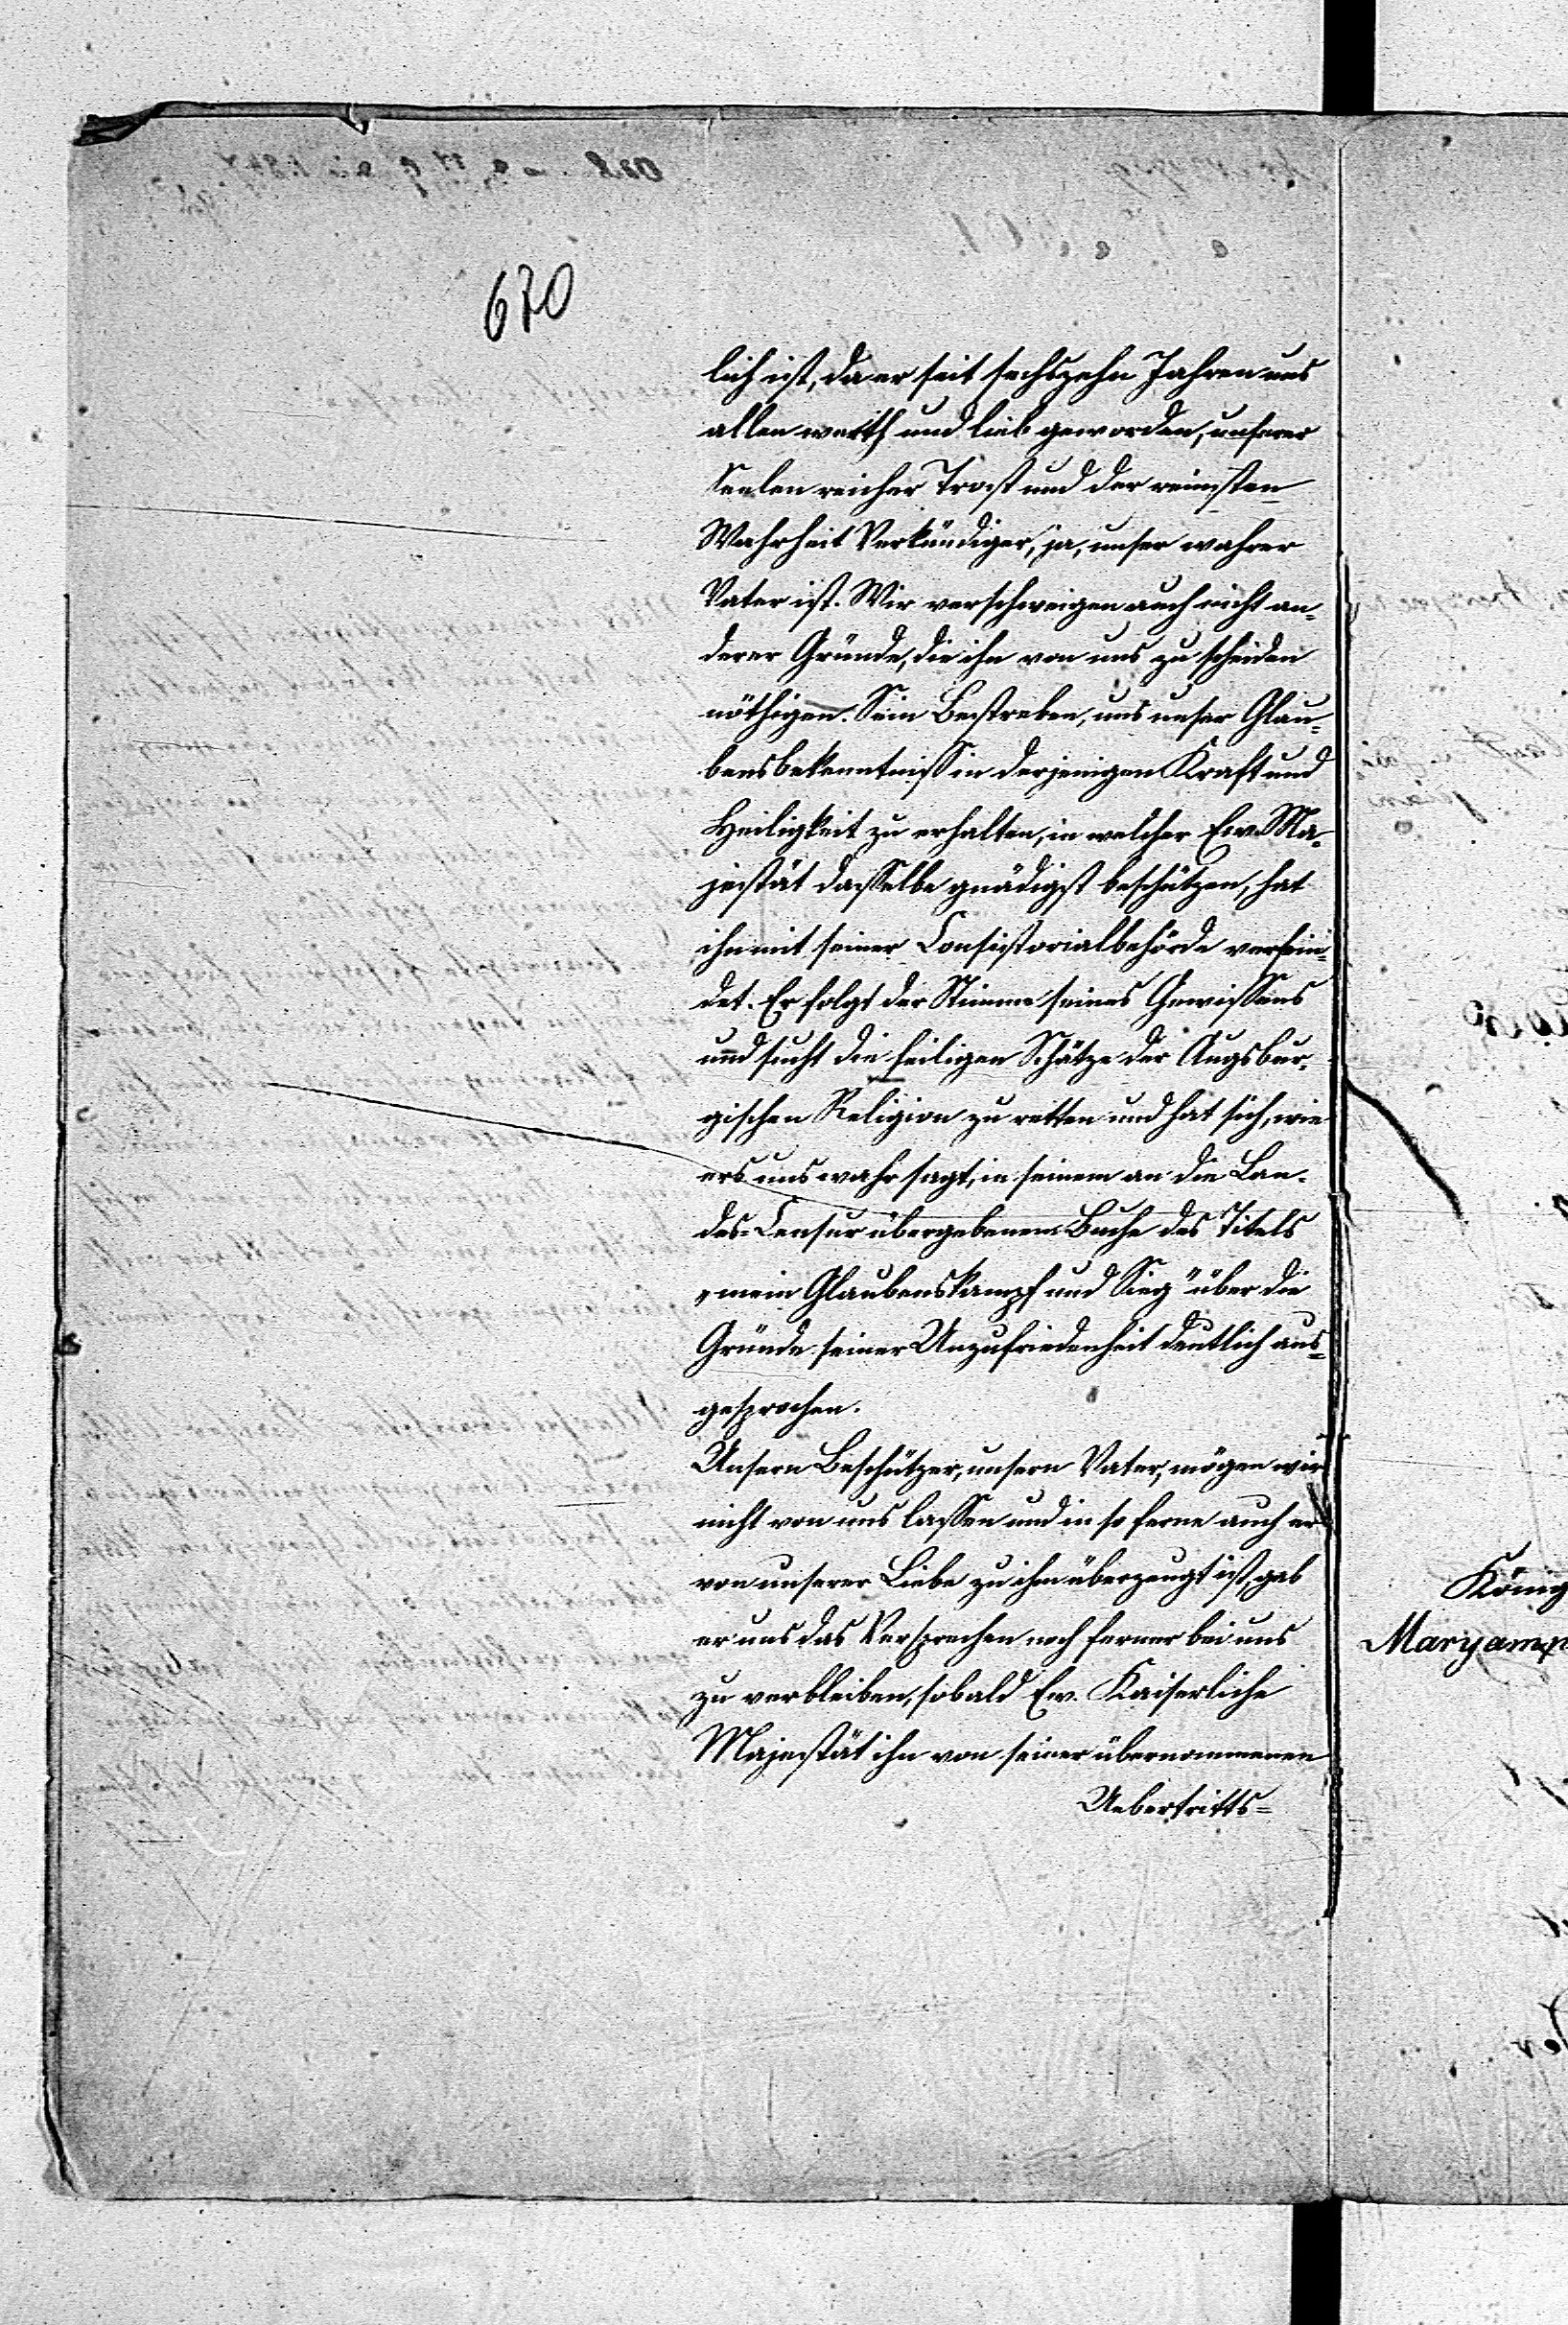 670
lich ist, da er seit sechszehn Jahren uns
allen werth und lieb geworden, unserer
Seelen reicher Trost und der reinsten
Wahrheit Verkündiger, ja, unser wahrer
Vater ist. Wir verschweigen auch nicht an-
derer Gründe, die ihn von uns zu scheiden
nöthigen. Sein Bestreben, uns unser Glau-
bensbekenntniß in derjenigen Kraft und
Heiligkeit zu erhalten, in welcher Ew. Ma-
jestät dasselbe gnädigst beschützen, hat
ihn mit seiner Consistorialbehörde verfein-
det. Er folgt der Stimme seines Gewissens
und sucht die heiligen Schätze der Augsbur-
gischen Religion zu retten und hat sich, wie
er's uns wahr sagt, in seinem an die Lan-
des-Censur übergebenem Buche des Titels
„mein Glaubenskampf und Sieg" über die
Gründe seiner Unzufriedenheit deutlich aus-
gesprochen.
Unsern Beschützer, unsern Vater, mögen wir
nicht von uns lassen und in so ferne auch er
von unserer Liebe zu ihm überzeugt ist, gab
er uns das Versprechen noch ferner bei uns
zu verbleiben, sobald Ew. Kaiserliche
Majestät ihn von seiner übernommenen
Uebertritts-
König
Maryamp